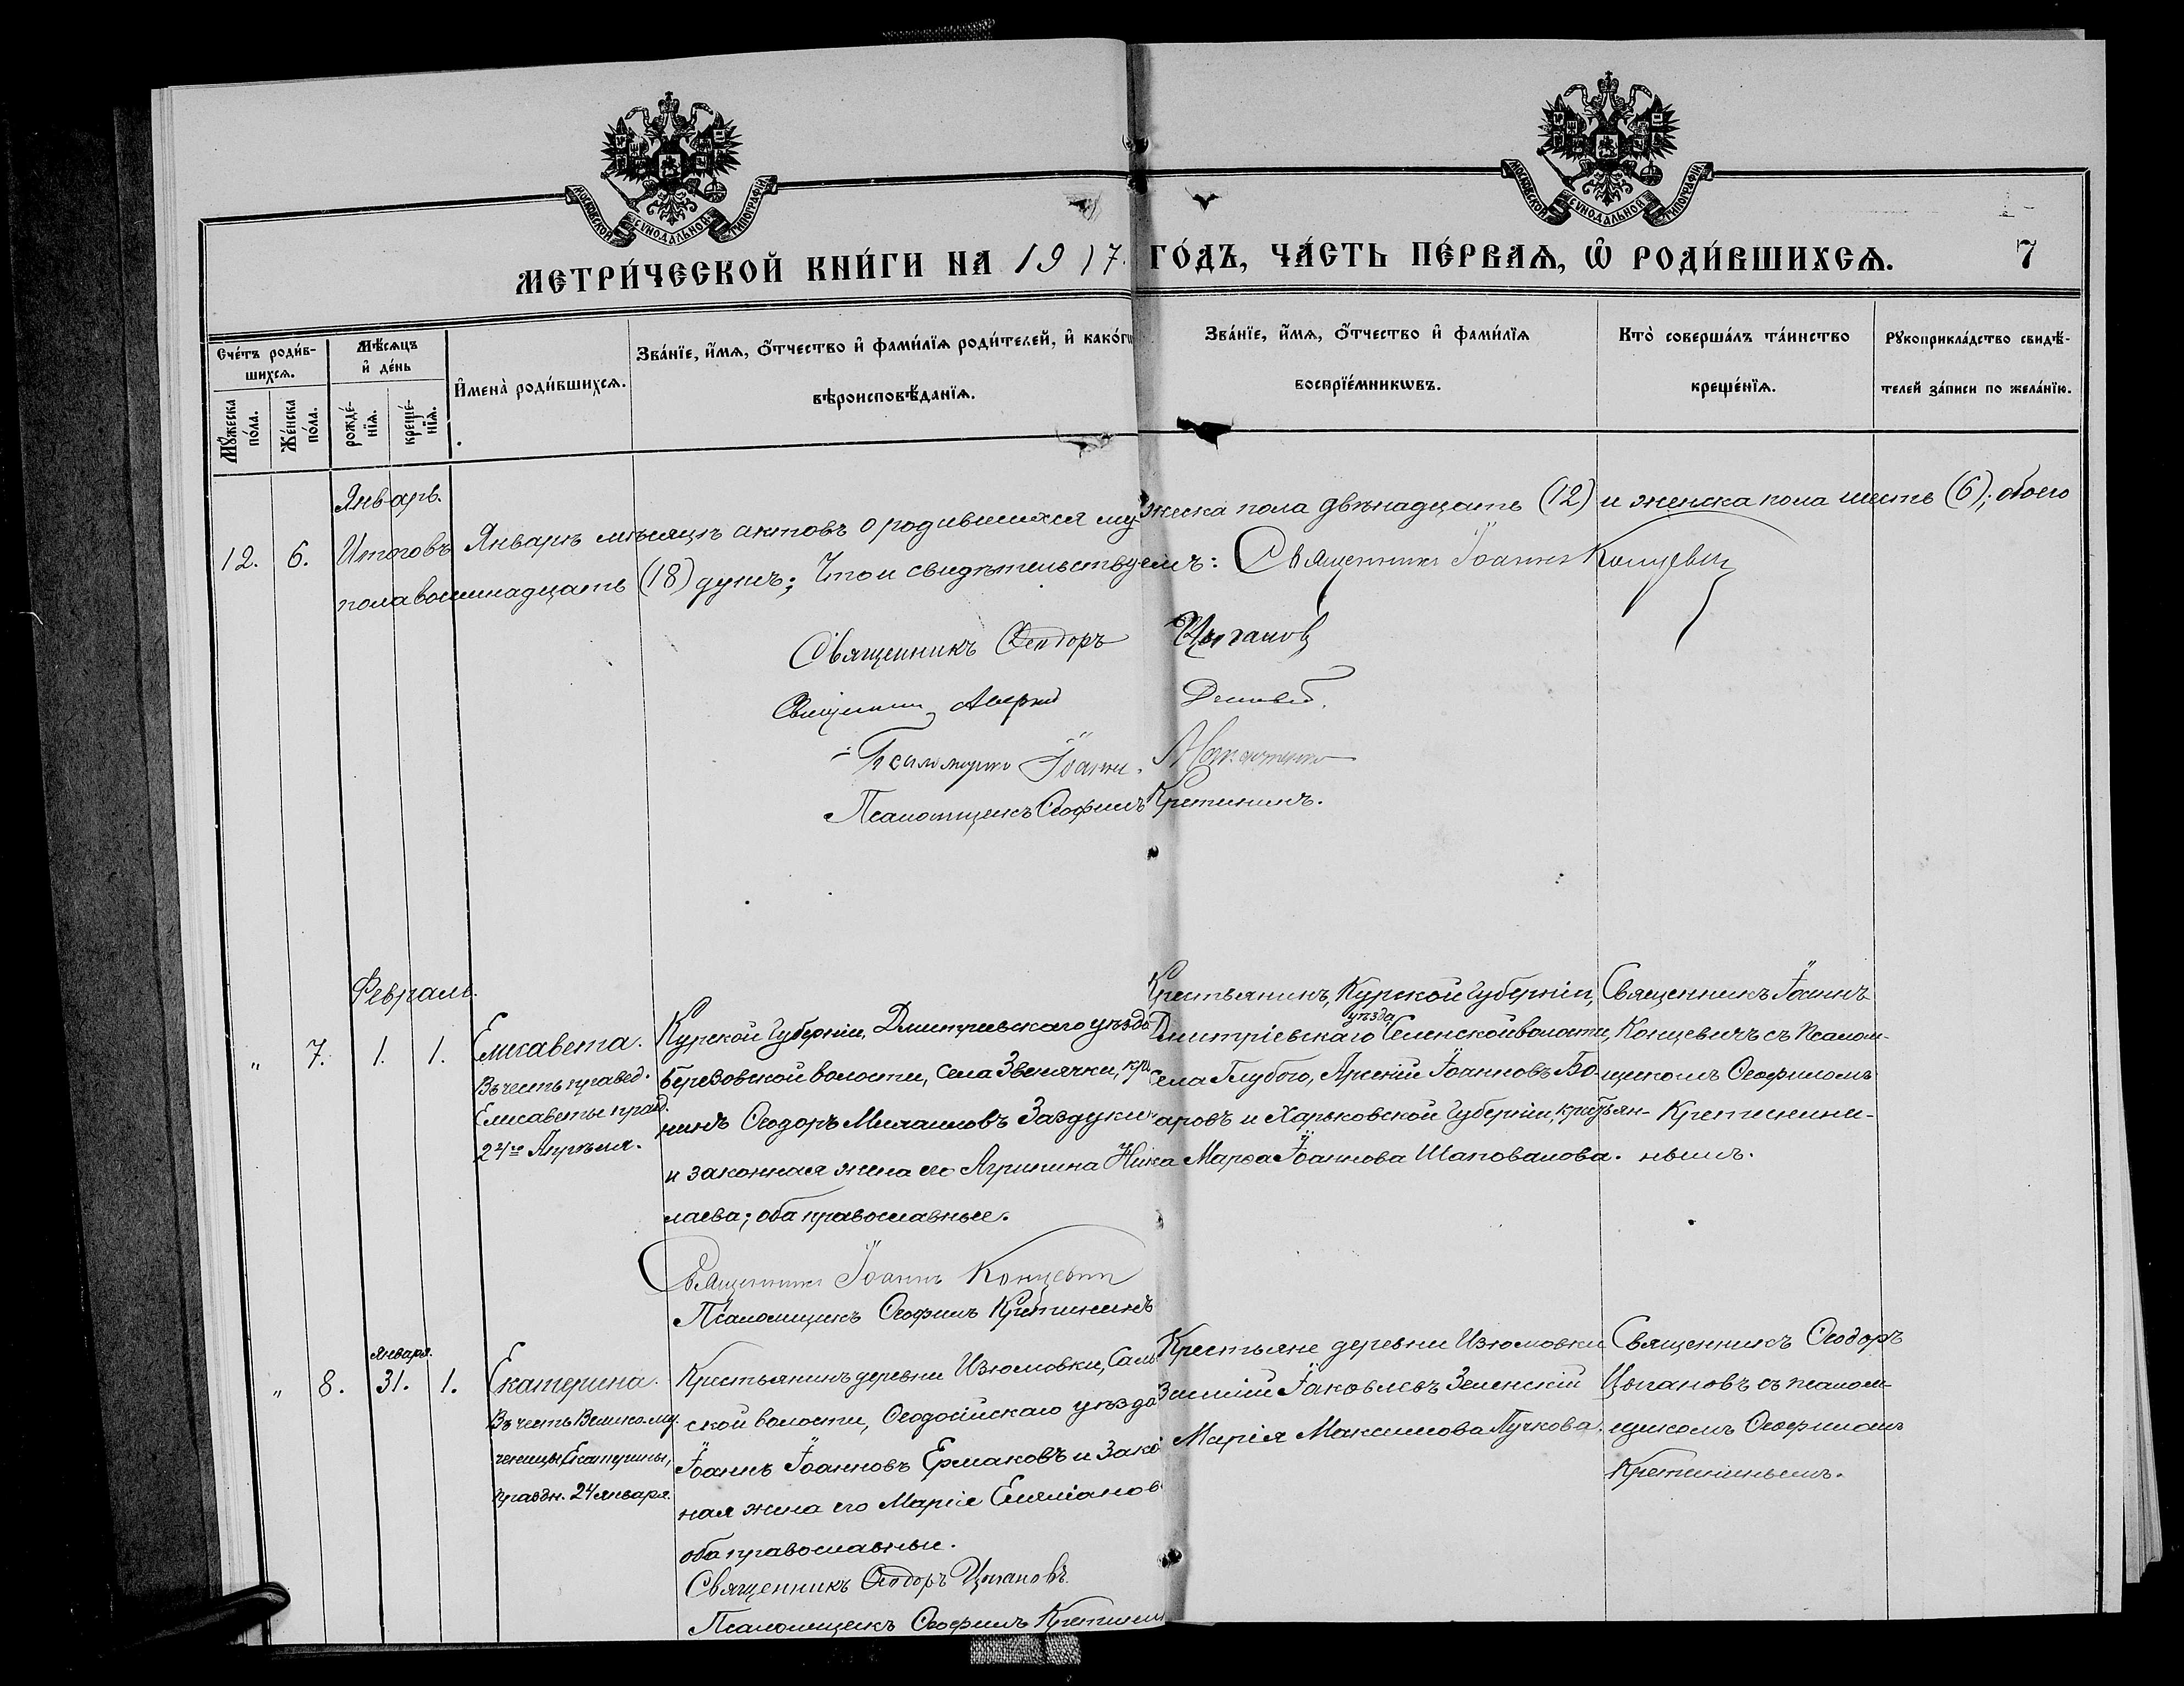 МОСКОВСКОЙ СѴНОДАЛЬНОЙ ТИПОГРАФІИ
МОСКОВСКОЙ СѴНОДАЛЬНОЙ ТИПОГРАФІИ
МЕТРИ́ЧЕСКОЙ КНИ́ГИ НА 1917. ГО́ДЪ, ЧА́СТЬ ПЕ́РВАѦ, Ѡ҆ РОДИ́ВШИХСѦ.
7
Сче́тъ роди́в-
шихсѧ.
Мꙋ́жеска по́ла.
Же́нска по́ла.
Мѣ́сѧцъ
и҆ де́нь
рожде́-
нїѧ.
креще́-
нїѧ.
И҆мена̀ роди́вшихсѧ.
Зва́нїе, и҆́мѧ, ѻ҆́тчество и҆ фами́лїѧ роди́телей, и҆ како́гѡ
вѣроисповѣ́данїѧ.
Зва́нїе, и҆́мѧ, ѻ҆́тчество и҆ фами́лїѧ
воспрїе́мникѡвъ.
Кто̀ соверша́лъ та́инство
креще́нїѧ.
Рꙋкоприкла́дство свидѣ́-
телей за́писи по жела́нїю.
Январь.
12. 6. Итоговъ Январѣ мѣсяцѣ актовъ о родившихся мужеска пола двѣнадцать (12) и женска пола шесть (6); обоего
пола восемнадцать (18) душъ; Что и свидѣтельствуемъ: Священникъ Іоаннъ Концевич
Священникъ Ѳеодоръ Цыганов
Священник
Псаломщик Іоанн
Псаломщикъ Ѳеофилъ Кретининъ.
Февраль.
" 7. 1. 1.
Елисавета.
Въ честь правед.
Елисаветы празд.
24го Апрѣля.
Курской Губерніи, Дмитріевскаго уѣзда
Березовской волости, села Звенячки, кр
нинъ Ѳеодоръ Михаиловъ Заздукин
и законная жена его Агрипина Нико
лаева; оба православные.
Священникъ Іоаннъ Концевич
Псаломщикъ Ѳеофилъ Кретининъ
Крестьянинъ, Курской Губерніи,
уѣзда
Дмитріевскаго Селенской волости,
села Глубого, Арсеній Іоанновъ Бо-
аровъ и Харьковской Губерніи, крестьян-
ка Марѳа Іоаннова Шаповалова.
Священникъ Іоаннъ
Концевичъ съ псалом-
щикомъ Ѳеофиломъ
Кретинини-
нымъ.
Января.
" 8. 31. 1.
Екатерина.
Въ честь Великому
ченицы Екатерины,
праздн. 24 января.
Крестьянинъ деревни Изюмовки, Салы
ской волости, Ѳеодосійскаго уѣзда
Іоаннъ Іоанновъ Ермаковъ и зако
ная жена его Марія Емеліанов
оба православные.
Священникъ Ѳеодоръ Цыгановъ.
Псаломщикъ Ѳеофилъ Кретинин
Крестьяне деревни Изюмовки
Іаковлевъ Зеленскій
Марія Максимова Пучкова.
Священникъ Ѳеодоръ
Цыгановъ съ псалом-
щикомъ Ѳеофиломъ
Кретининымъ.